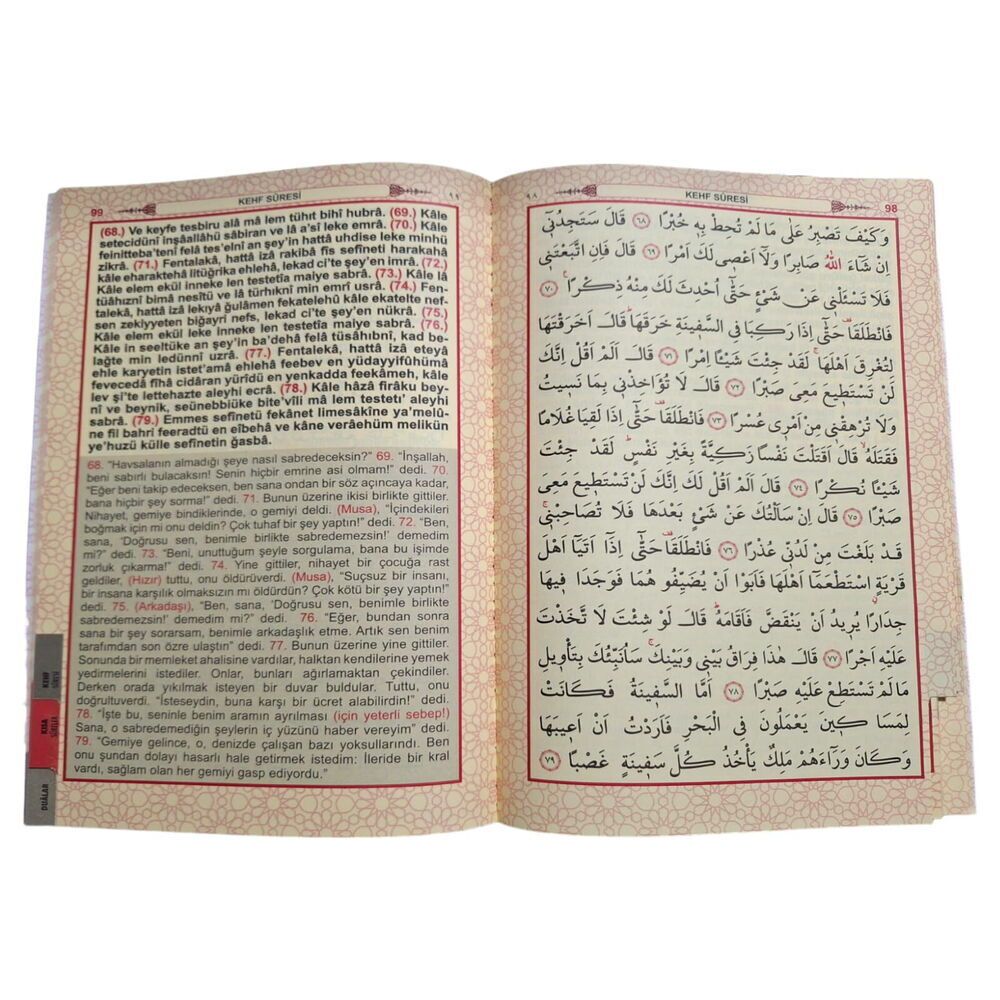 99
KEHF SÛRESİ
٩٩
(68.) Ve keyfe tesbiru alâ mâ lem tühıt bihî hubrâ. (69.) Kâle
setecidünî inşâallâhü sâbiran ve lâ a'sî leke emrâ. (70.) Kâle
feinitteba'tenî felâ tes'elnî an şey'in hattâ uhdise leke minhü
zikrâ. (71.) Fentalakâ, hattâ izâ rakibâ fis sefîneti harakahâ
kâle eharaktehâ litüğrika ehlehâ, lekad ci'te şey'en imrâ. (72.)
Kâle elem ekül inneke len testetîa maiye sabrâ. (73.) Kâle lâ
tüâhıznî bimâ nesîtü ve lâ türhıknî min emrî usrâ. (74.) Fen-
talekâ, hattâ izâ lekıyâ ğulâmen fekatelehû kâle ekatelte nef-
sen zekiyyeten biğayri nefs, lekad ci'te şey'en nükrâ. (75.)
Kâle elem ekül leke inneke len testetîa maiye sabrâ. (76.)
Kâle in seeltüke an şey'in ba'dehâ felâ tüsâhıbnî, kad be-
lağte min ledünnî uzrâ. (77.) Fentalekâ, hattâ izâ eteyâ
ehle karyetin istet'amâ ehlehâ feebev en yüdayyifûhümâ
fevecedâ fîhâ cidâran yürîdü en yenkadda feekâmeh, kâle
lev şi'te lettehazte aleyhi ecrâ. (78.) Kâle hâzâ firâku bey-
nî ve beynik, seünebbiüke bite'vîli mâ lem testetı' aleyhi
sabrâ. (79.) Emmes sefînetü fekânet limesâkîne ya'melû-
ne fil bahri feeradtü en eîbehâ ve kâne verâehüm melikün
ye'huzü külle sefînetin ğasbâ.
68. "Havsalanın almadığı şeye nasıl sabredeceksin?" 69. "İnşallah,
beni sabırlı bulacaksın! Senin hiçbir emrine asi olmam!" dedi. 70.
"Eğer beni takip edeceksen, ben sana ondan bir söz açıncaya kadar,
bana hiçbir şey sorma!" dedi. 71. Bunun üzerine ikisi birlikte gittiler.
Nihayet, gemiye bindiklerinde, o gemiyi deldi. (Musa), "İçindekileri
boğmak için mi onu deldin? Çok tuhaf bir şey yaptın!" dedi. 72. "Ben,
sana, 'Doğrusu sen, benimle birlikte sabredemezsin!' demedim
mi?" dedi. 73. "Beni, unuttuğum şeyle sorgulama, bana bu işimde
zorluk çıkarma!" dedi. 74. Yine gittiler, nihayet bir çocuğa rast
geldiler, (Hızır) tuttu, onu öldürüverdi. (Musa), "Suçsuz bir insanı,
bir insana karşılık olmaksızın mı öldürdün? Çok kötü bir şey yaptın!"
dedi. 75. (Arkadaşı), "Ben, sana, 'Doğrusu sen, benimle birlikte
sabredemezsin!' demedim mi?" dedi. 76. "Eğer, bundan sonra
sana bir şey sorarsam, benimle arkadaşlık etme. Artık sen benim
tarafımdan son özre ulaştın" dedi. 77. Bunun üzerine yine gittiler.
Sonunda bir memleket ahalisine vardılar, halktan kendilerine yemek
yedirmelerini istediler. Onlar, bunları ağırlamaktan çekindiler.
Derken orada yıkılmak isteyen bir duvar buldular. Tuttu, onu
doğrultuverdi. "İsteseydin, buna karşı bir ücret alabilirdin!" dedi.
78. "İşte bu, seninle benim aramın ayrılması (için yeterli sebep!)
Sana, o sabredemediğin şeylerin iç yüzünü haber vereyim" dedi.
79. "Gemiye gelince, o, denizde çalışan bazı yoksullarındı. Ben
onu şundan dolayı hasarlı hale getirmek istedim: İleride bir kral
vardı, sağlam olan her gemiyi gasp ediyordu."
KEHF
SÛRESİ
KISA
SÛRELER
DUÂLAR
٩٨
KEHF SÛRESİ
98
وَكَيْفَ تَصْبِرُ عَلٰى مَا لَمْ تُحِطْ بِهٖ خُبْرًا ﴿٦٨﴾ قَالَ سَتَجِدُنٖٓى
اِنْ شَٓاءَ اللّٰهُ صَابِرًا وَلَٓا اَعْصٖى لَكَ اَمْرًا ﴿٦٩﴾ قَالَ فَاِنِ اتَّبَعْتَنٖى
فَلَا تَسْئَلْنٖى عَنْ شَىْءٍ حَتّٰٓى اُحْدِثَ لَكَ مِنْهُ ذِكْرًا ﴿٧٠﴾
فَانْطَلَقَا حَتّٰٓى اِذَا رَكِبَا فِى السَّفٖينَةِ خَرَقَهَا قَالَ اَخَرَقْتَهَا
لِتُغْرِقَ اَهْلَهَا لَقَدْ جِئْتَ شَيْئًا اِمْرًا ﴿٧١﴾ قَالَ اَلَمْ اَقُلْ اِنَّكَ
لَنْ تَسْتَطٖيعَ مَعِىَ صَبْرًا ﴿٧٢﴾ قَالَ لَا تُؤَاخِذْنٖى بِمَا نَسٖيتُ
وَلَا تُرْهِقْنٖى مِنْ اَمْرٖى عُسْرًا ﴿٧٣﴾ فَانْطَلَقَا حَتّٰٓى اِذَا لَقِيَا غُلَامًا
فَقَتَلَهُ قَالَ اَقَتَلْتَ نَفْسًا زَكِيَّةً بِغَيْرِ نَفْسٍ لَقَدْ جِئْتَ
شَيْئًا نُكْرًا ﴿٧٤﴾ قَالَ اَلَمْ اَقُلْ لَكَ اِنَّكَ لَنْ تَسْتَطٖيعَ مَعِىَ
صَبْرًا ﴿٧٥﴾ قَالَ اِنْ سَاَلْتُكَ عَنْ شَىْءٍ بَعْدَهَا فَلَا تُصَاحِبْنٖى
قَدْ بَلَغْتَ مِنْ لَدُنّٖى عُذْرًا ﴿٧٦﴾ فَانْطَلَقَا حَتّٰٓى اِذَٓا اَتَيَٓا اَهْلَ
قَرْيَةٍ اسْتَطْعَمَٓا اَهْلَهَا فَاَبَوْا اَنْ يُضَيِّفُوهُمَا فَوَجَدَا فٖيهَا
جِدَارًا يُرٖيدُ اَنْ يَنْقَضَّ فَاَقَامَهُ قَالَ لَوْ شِئْتَ لَا تَّخَذْتَ
عَلَيْهِ اَجْرًا ﴿٧٧﴾ قَالَ هٰذَا فِرَاقُ بَيْنٖى وَبَيْنِكَ سَاُنَبِّئُكَ بِتَاْوٖيلِ
مَا لَمْ تَسْتَطِعْ عَلَيْهِ صَبْرًا ﴿٧٨﴾ اَمَّا السَّفٖينَةُ فَكَانَتْ
لِمَسَاكٖينَ يَعْمَلُونَ فِى الْبَحْرِ فَاَرَدْتُ اَنْ اَعٖيبَهَا
وَكَانَ وَرَٓاءَهُمْ مَلِكٌ يَاْخُذُ كُلَّ سَفٖينَةٍ غَصْبًا ﴿٧٩﴾